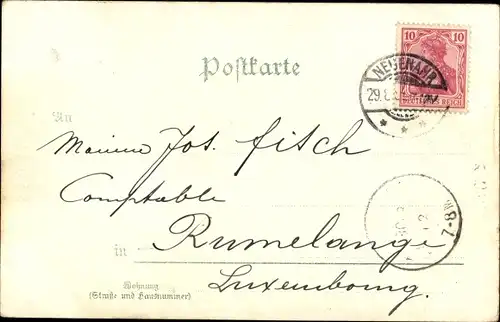 10 10
DEUTSCHES REICH
NEUENAHR
29.8.
Postkarte
An
Jos. Fisch
Comptable
in Rumelange
Luxembourg.
Wohnung
(Straße und Hausnummer)
7-8